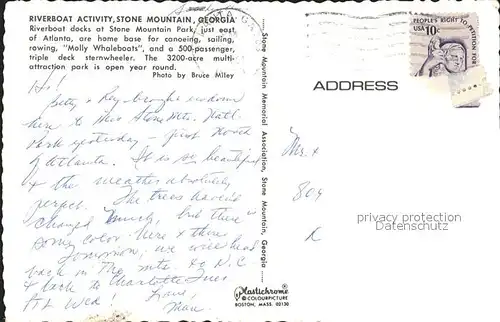 RIVERBOAT ACTIVITY, STONE MOUNTAIN, GEORGIA
Riverboat docks at Stone Mountain Park, just east
of Atlanta, are home base for canoeing, sailing,
rowing, "Molly Whaleboats", and a 500-passenger,
triple deck sternwheeler. The 3200-acre multi-
attraction park is open year round.
Photo by Bruce Miley
Sunday
Hi!
Betty & Ray brought us down
here to this Stone Mt. Natl.
Park yesterday - just North
of Atlanta. It is so beautiful
& the weather absolutely
perfect. The trees haven't
changed much, but there is
some color here & there
Tomorrow, we will head
back in the mts. to N.C
& back to Charlotte Tues
At Wed!
Love,
Stone Mountain Memorial Association, Stone Mountain, Georgia
Plastichrome
® COLOURPICTURE
BOSTON, MASS. 02130
PEOPLE'S RIGHT TO PETITION FOR
USA 10c
ADDRESS
Mr. &
804
privacy protection
Datenschutz